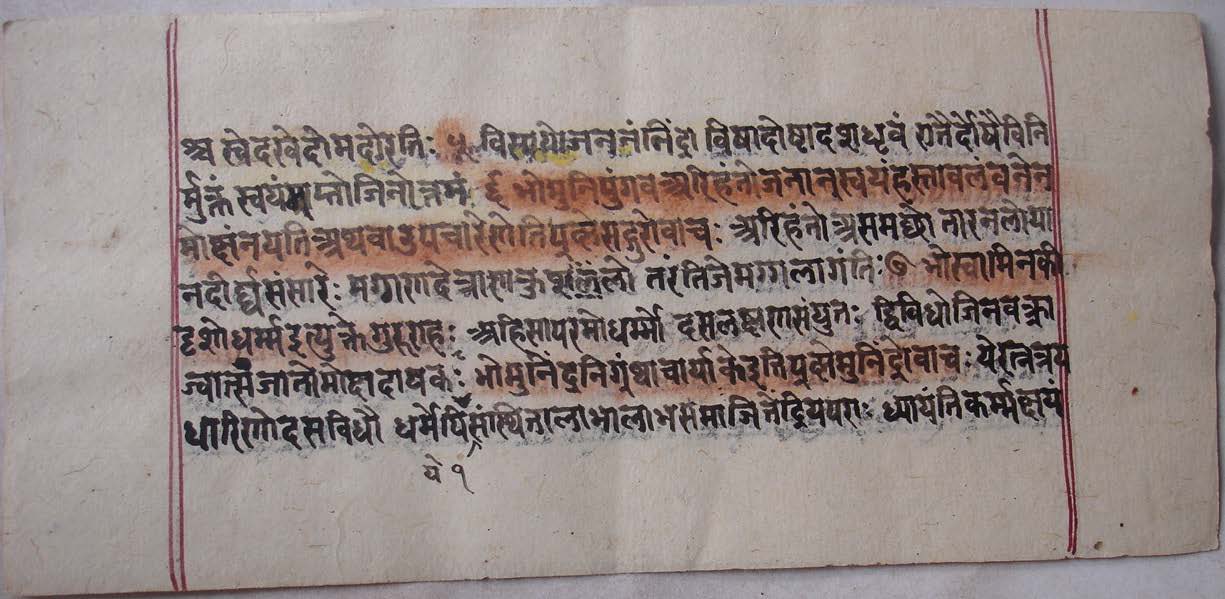 श्च स्वेदखेदोमदोरतिः ५ विस्मयोजननंनिंद्रो विषादोष्टादशधृवं एतैर्दोषैविनि
र्मुक्तं स्वयंमाप्तोजिनोत्तमं ६ भोमुनिपुंगवअरिहंतोजनानस्वयंहस्तावलंवनेन
मोक्षंनयतिअथवाउपचारेणेतिपृष्टेसद्गुरोवाचः अरिहंतोअसमर्छो तारनलोया
नदीर्घसंसारे: मग्गरणदे तरंतिजेमग्गलागंति: ७ भोस्वामिनकी
दृशोधर्म्मइत्युक्तेगुरुराहः अहिंसापरमोधर्म्मो दसलक्षणसंयुतः द्विविधोजिनवक्त्रा
ज्वात्संजातोमोक्षदायकः भोमुनिंद्रनिग्रंथाचार्याकेइतिपृष्टेमुनिंद्रोवाचः येरत्नत्रय
धारिणोदसविधौ धर्मेपिसंस्थितालाभालाभसमाजितेंद्रियपराः ध्यायंतिकर्म्मक्षयं
ये १